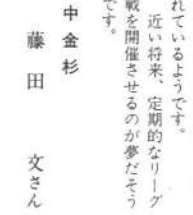 れているようです。
近い将来、定期的なリーグ
戦を開催させるのが夢だそう
です。
中金杉
藤田 文さん